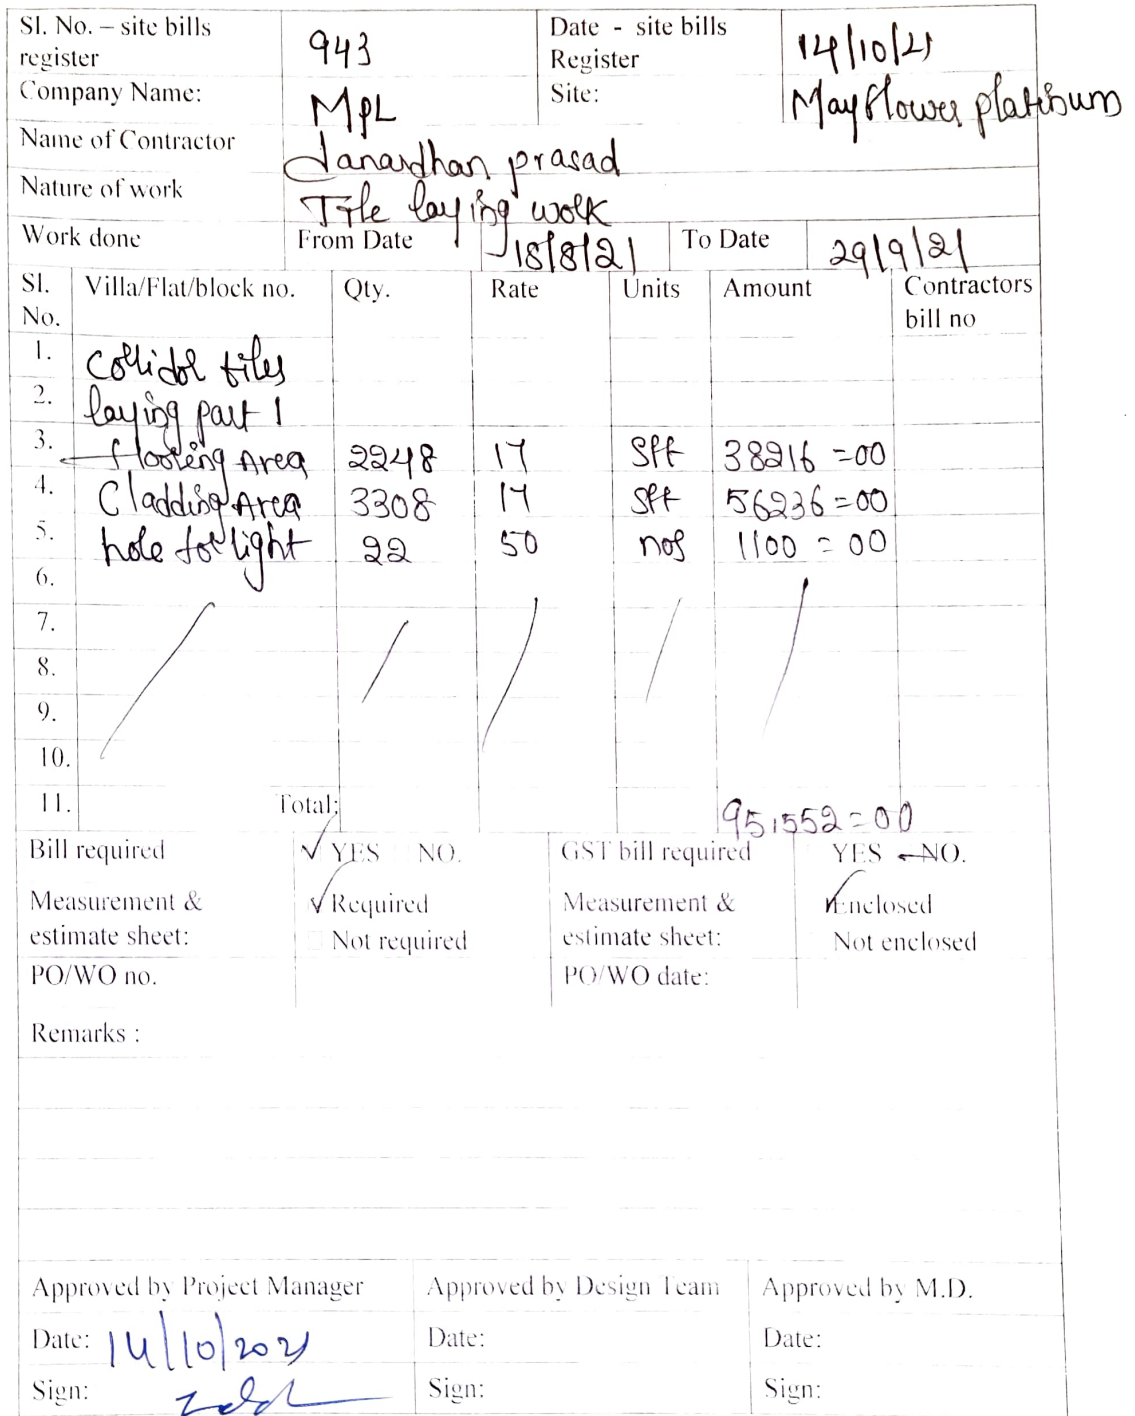 Sl. No. – site bills register 943 Date - site bills Register 14/10/21
Company Name: MPL Site: Mayflower platinum
Name of Contractor Janardhan prasad
Nature of work Tile laying work
Work done From Date 18/8/21 To Date 29/9/21
Sl. No. Villa/Flat/block no. Qty. Rate Units Amount Contractors bill no
1. Corridor tiles
2. laying part 1
3. flooring Area 2248 17 sft 38216=00
4. Cladding Area 3308 17 sft 56236=00
5. hole for light 22 50 nos 1100=00
6.
7.
8.
9.
10.
11. Total: 951552=00
Bill required YES NO. GST bill required YES NO.
Measurement & estimate sheet: Required Measurement & estimate sheet: Enclosed
Not required Not enclosed
PO/WO no. PO/WO date:
Remarks :
Approved by Project Manager Approved by Design Team Approved by M.D.
Date: 14/10/2021 Date: Date:
Sign: Sign: Sign: